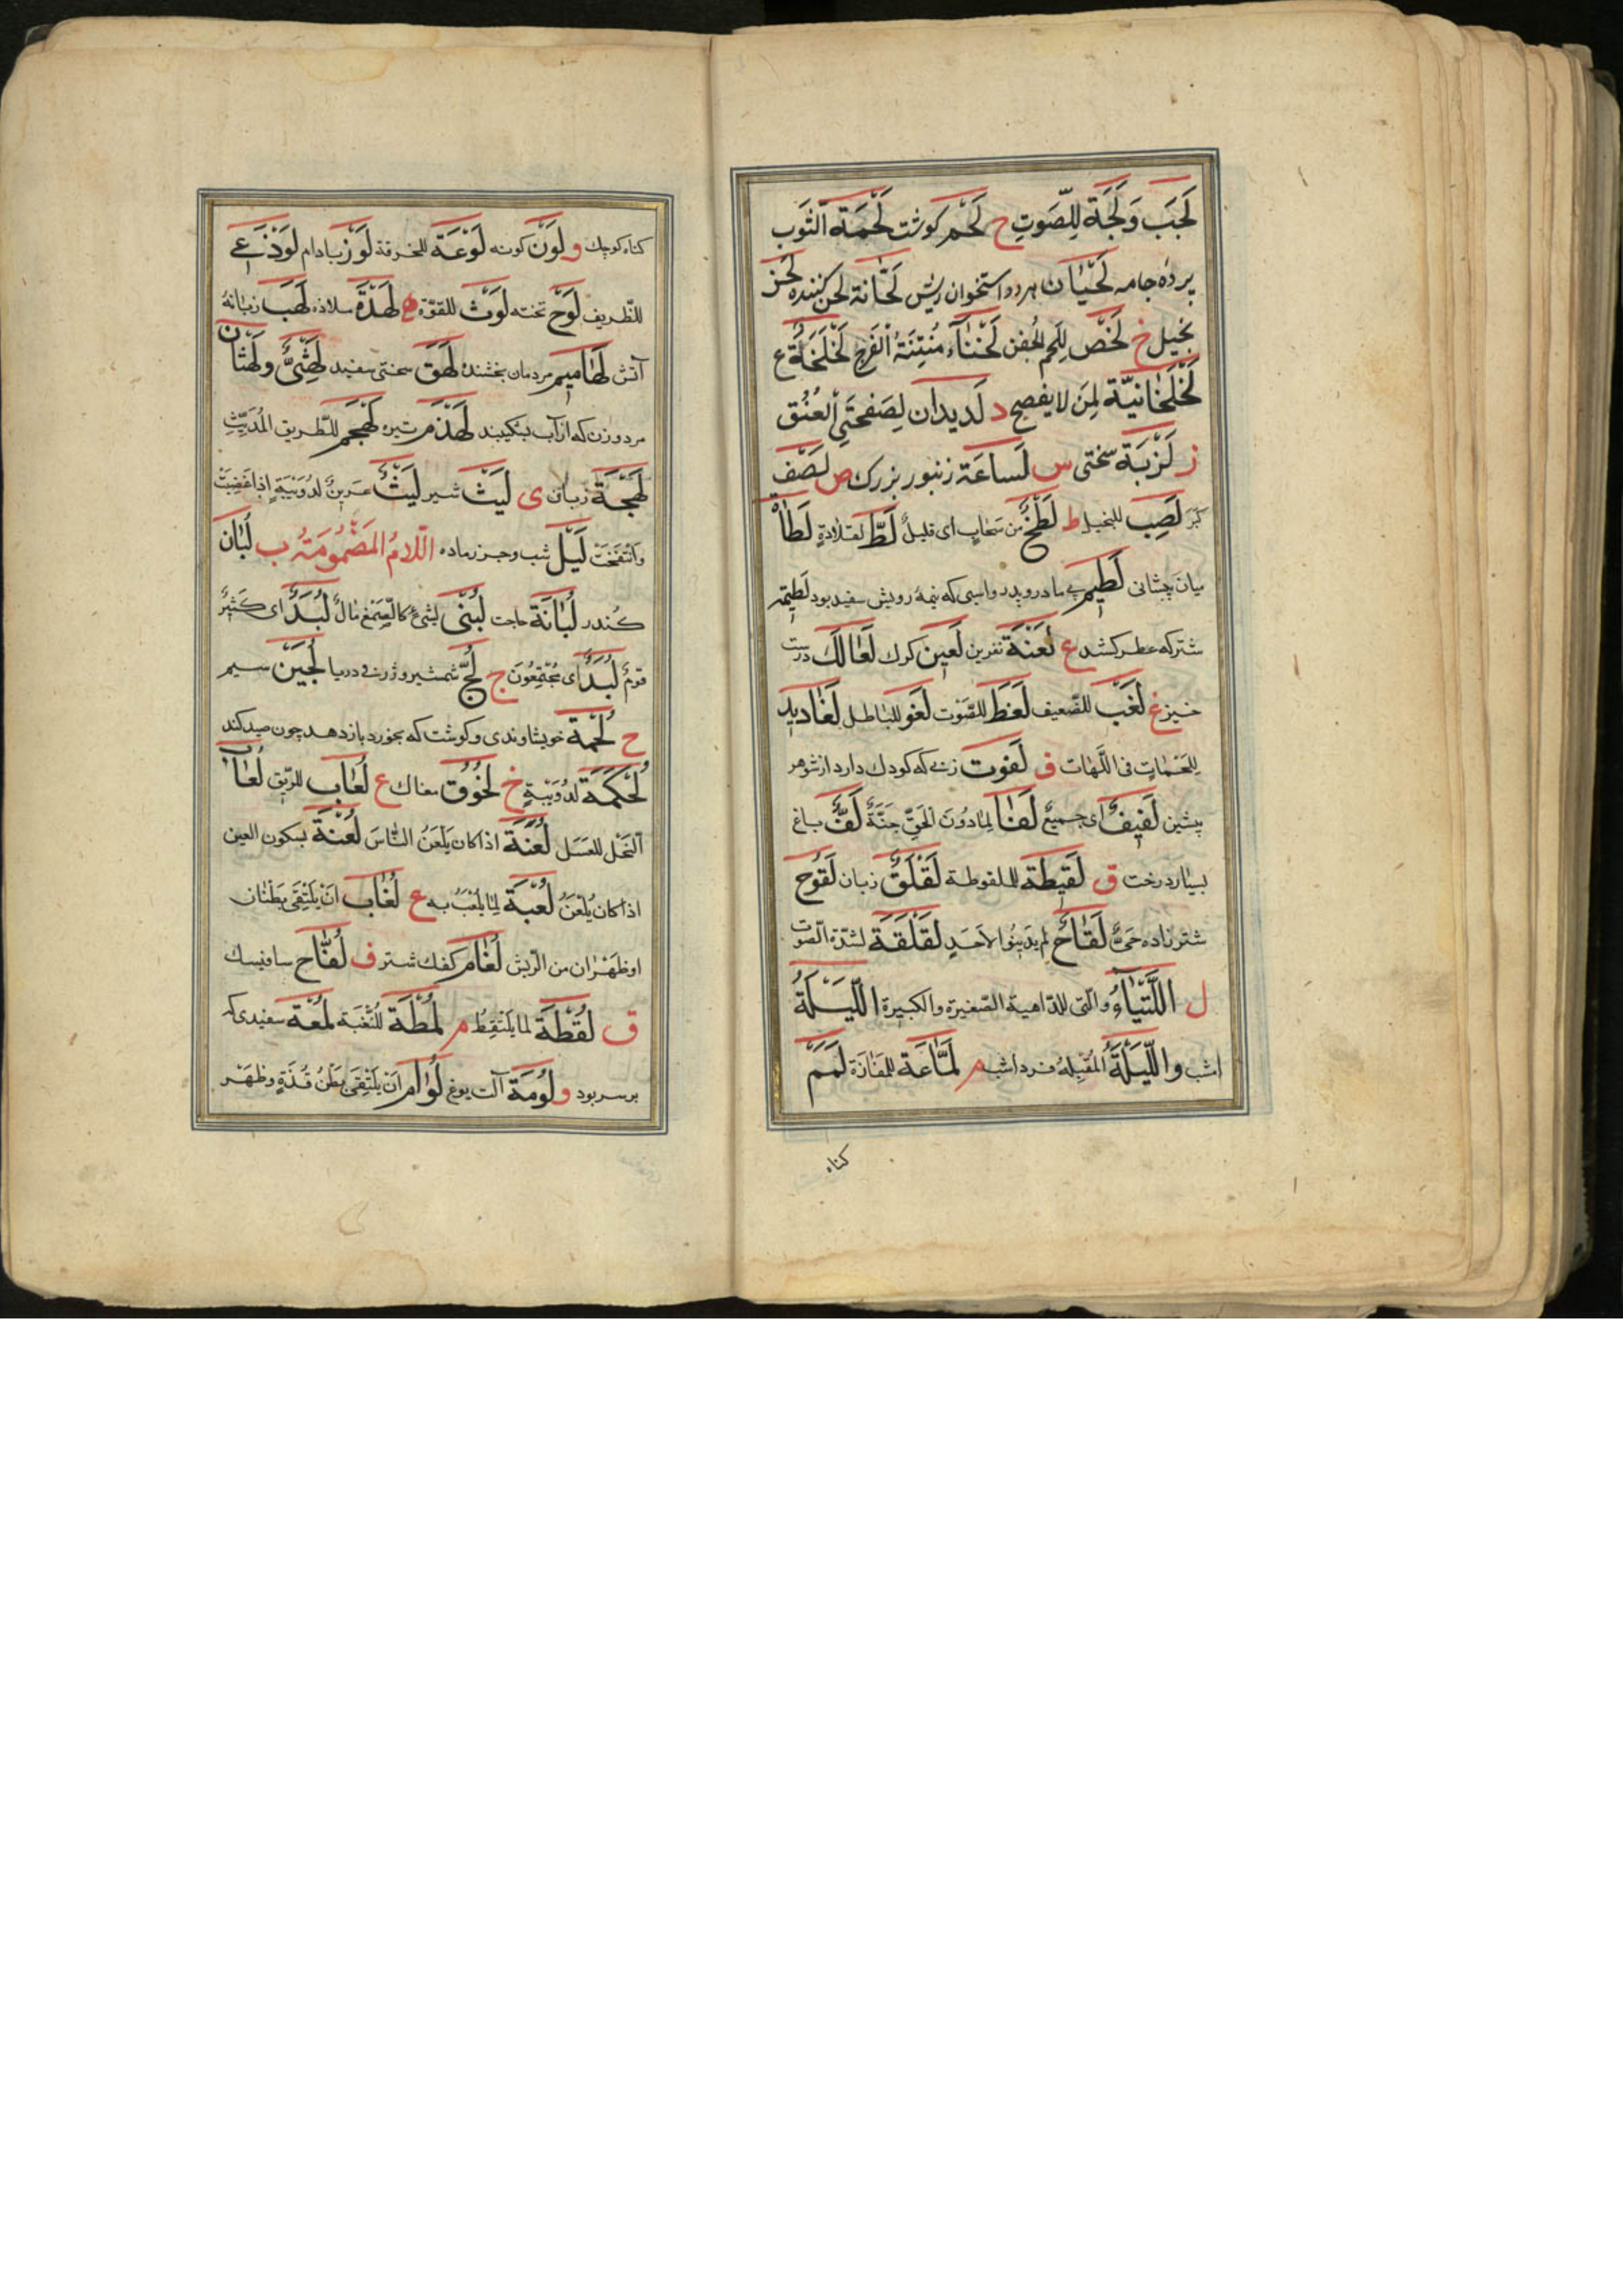 لَجَب وَلَجَّة لِلصَّوتِ ح لَحْم كوشت لَحْمَة الثَّوب
پرده جامه لَحْيَان هر دو استخوان ريش لَحَّانة لحن كننده لَحِز
بخيل خ لَخْص لِلَحمِ الجفن لَخْنَاء مُنتِنَةُ الفَرجِ
لَخْلَخَانيّة لِمَن لا يفصح د لَديدان لِصَفحَتَي العُنُق
ز لَزْبَة سختى س لَساعَة زنبور بزرك ص لَصَف
كَبَر لَصِب للبخيل ط لَطْخٌ من سَحابٍ اى قليلٌ لَطّ لقلادةٍ لَطَاة
ميان پيشانى لَطِيم بى مادر و پدر و اسبى كه نيمهٔ رويش سفيد بود لَطِيمَة
شتر كه عطر كشد ع لَعْنَة نفرين لَعين كرك لَعًا لَكَ درست
خيز غ لَغْب للضّعيف لَغَط للصَّوت لَغو للباطل لَغَاديد
لِلَحَمَاتٍ فى اللَّهَات ف لَفوت زنى كه كودك دارد از شوهر
پيشين لَفيفٌ اى جميعٌ لَفَا لِما دُونَ الحَقِّ جَنَّةٌ لَفٌّ باغ
بسيار درخت ق لَقيطة للملفوطة لَقْلَقٌ زبان لَقوح
شتر زاده حَىٌّ لَقَاحٌ لم يدينُوا لاَحَدٍ لَقْلَقَة لشدّة الصّوت
ل اللَّتَيَّاءُ والّتى للدّاهية الصّغيرة والكبيرة اللَّيْلَةُ
امشب واللَّيْلَةُ المُقْبِلَة فردا شب م لَمَّاعَة للمَفازَة لَمَم
كناه
كناه كوچك و لَوْن كونه لَوْعَة للحرقة لَوْز بادام لَوْذَعِى
للظّريف لَوْح تخته لَوْث للقوّة ه لَهْذَة سلاذه لَهَب زبانهٔ
آتش لَهَاميم مردمان بخشنده لَهَق سختى سفيد لَهْثَى وَلَهْثَان
مرد و زن كه از آب بشكيبد لَهْذَم تيره لَهْجَم للطّريق المُدَيّثِ
لَهْجَة زبان ى لَيْث شير لَيْثُ عِرّينٍ لدُوَيْبَةٍ اذا غَضِبَتْ
وَانْتَفَخَتْ لَيْل شب و جرز ماده اللّامُ المَضْمُومَةُ ب لُبَان
كُندر لُبَانَة حاجت لُبْنَى لشىءٍ كالصَّمْغ مالٌ لُبَدٌ اى كَثيرٌ
قومٌ لُبَدٌ اى مُجْتَمِعُونَ ج لُجّ شمشير و ژرفى دريا لُجَيْن سيم
ح لُحْمَة خويشاوندى و كوشت كه بخورد باز دهد چون صيد كند
لُحْكَمَة لدُوَيْبَةٍ خ لُخْقُوق مغاك ع لُعَاب للرّيق لُعَابُ
النَّحْل للعَسَل لُعَنَة اذا كان يَلْعَنُ النّاسَ لُعْنَة بسكون العين
اذا كان يُلْعَنُ لُعْبَة لِمَا يُلْعَبُ به غ لُغَاب اَنْ يَلْتَقِىَ بَطْنَان
او ظَهْرَان من الرّيش لُغَام كفك شتر ف لُفَّاح سافيسك
ق لُقْطَة لما يُلْتَقَطُ م لُمْظَة للنُّغْبَة لُمْعَة سفيدى كه
بر سر بود و لُومَة آلت يوغ لُوَام اَنْ يَلْتَقِىَ بَطْنُ قُذَّةٍ وظَهْر